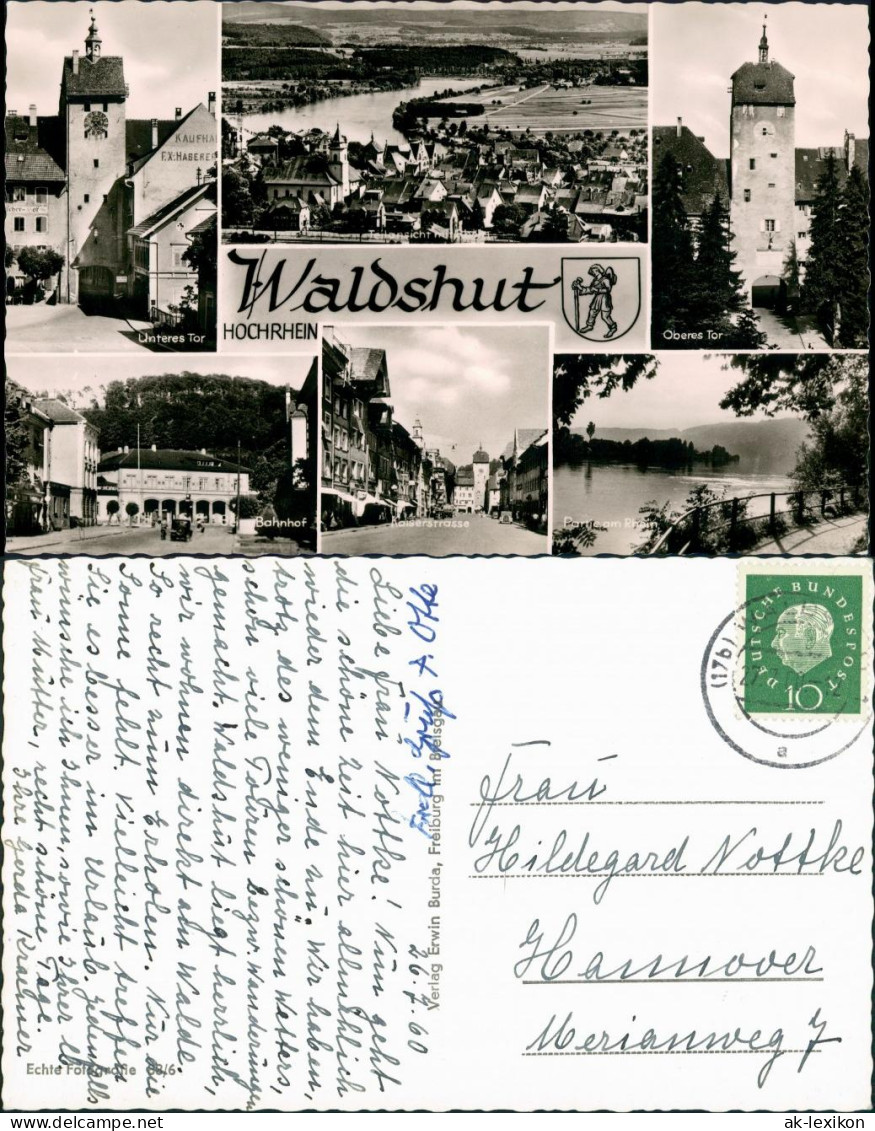 KAUFHA
FX: HABERE
Unteres Tor
Waldshut
HOCHRHEIN
Oberes Tor
Bahnhof
Kaiserstrasse
Partie am Rhein
26.7.60
Liebe Frau Nottke! Nun geht
die schöne Zeit hier allmählich
wieder dem Ende zu. Wir haben,
trotz des weniger schönen Wetters,
schon viele Touren bezw. Wanderungen
gemacht. Waldshut liegt herrlich,
wir wohnen direkt am Walde.
So recht zum Erholen. Nur die
Sonne fehlt. Vielleicht treffen
Sie es besser im Urlaub. Jedenfalls
wünsche ich Ihnen, sowie Ihrer lb
Frau Mutter, recht schöne Tage.
Ihre Gerda Kraemer
Gruß A. Otte
Verlag Erwin Burda, Freiburg im Breisgau
Echte Fotografie 68/6
DEUTSCHE BUNDESPOST
10
(17b)
a
Frau
Hildegard Nottke
Hannover
Merianweg 7
ak-lexikon